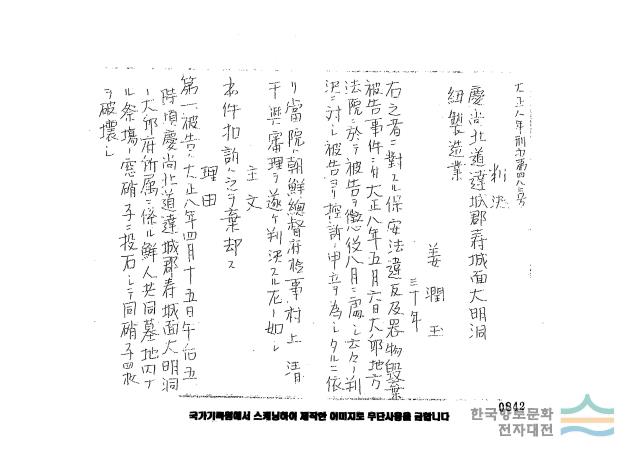 大正八年刑控第四八三号
判決
慶尚北道達城郡寿城面大明洞
紐製造業
姜潤玉
三十年
右之者ニ対スル保安法違反及器物毀棄
被告事件ニ付大正八年五月六日大邱地方
法院ニ於テ被告ヲ懲役八月ニ処シ云々ノ判
決ニ対シ被告ヨリ控訴ノ申立ヲ為シタルニ依
リ当院ハ朝鮮総督府検事村上清
干与審理ヲ遂ケ判決スル左ノ如シ
主文
本件控訴ハ之ヲ棄却ス
理由
第一被告ハ大正八年四月十五日午后五
時頃慶尚北道達城郡寿城面大明洞
大邱府所属ニ係ル鮮人共同墓地内ナ
ル祭場ノ窓硝子ニ投石シテ同硝子四枚
ヲ破壊シ
0842
국가기록원에서 스캐닝하여 제작한 이미지로 무단사용을 금합니다
한국향토문화
전자대전